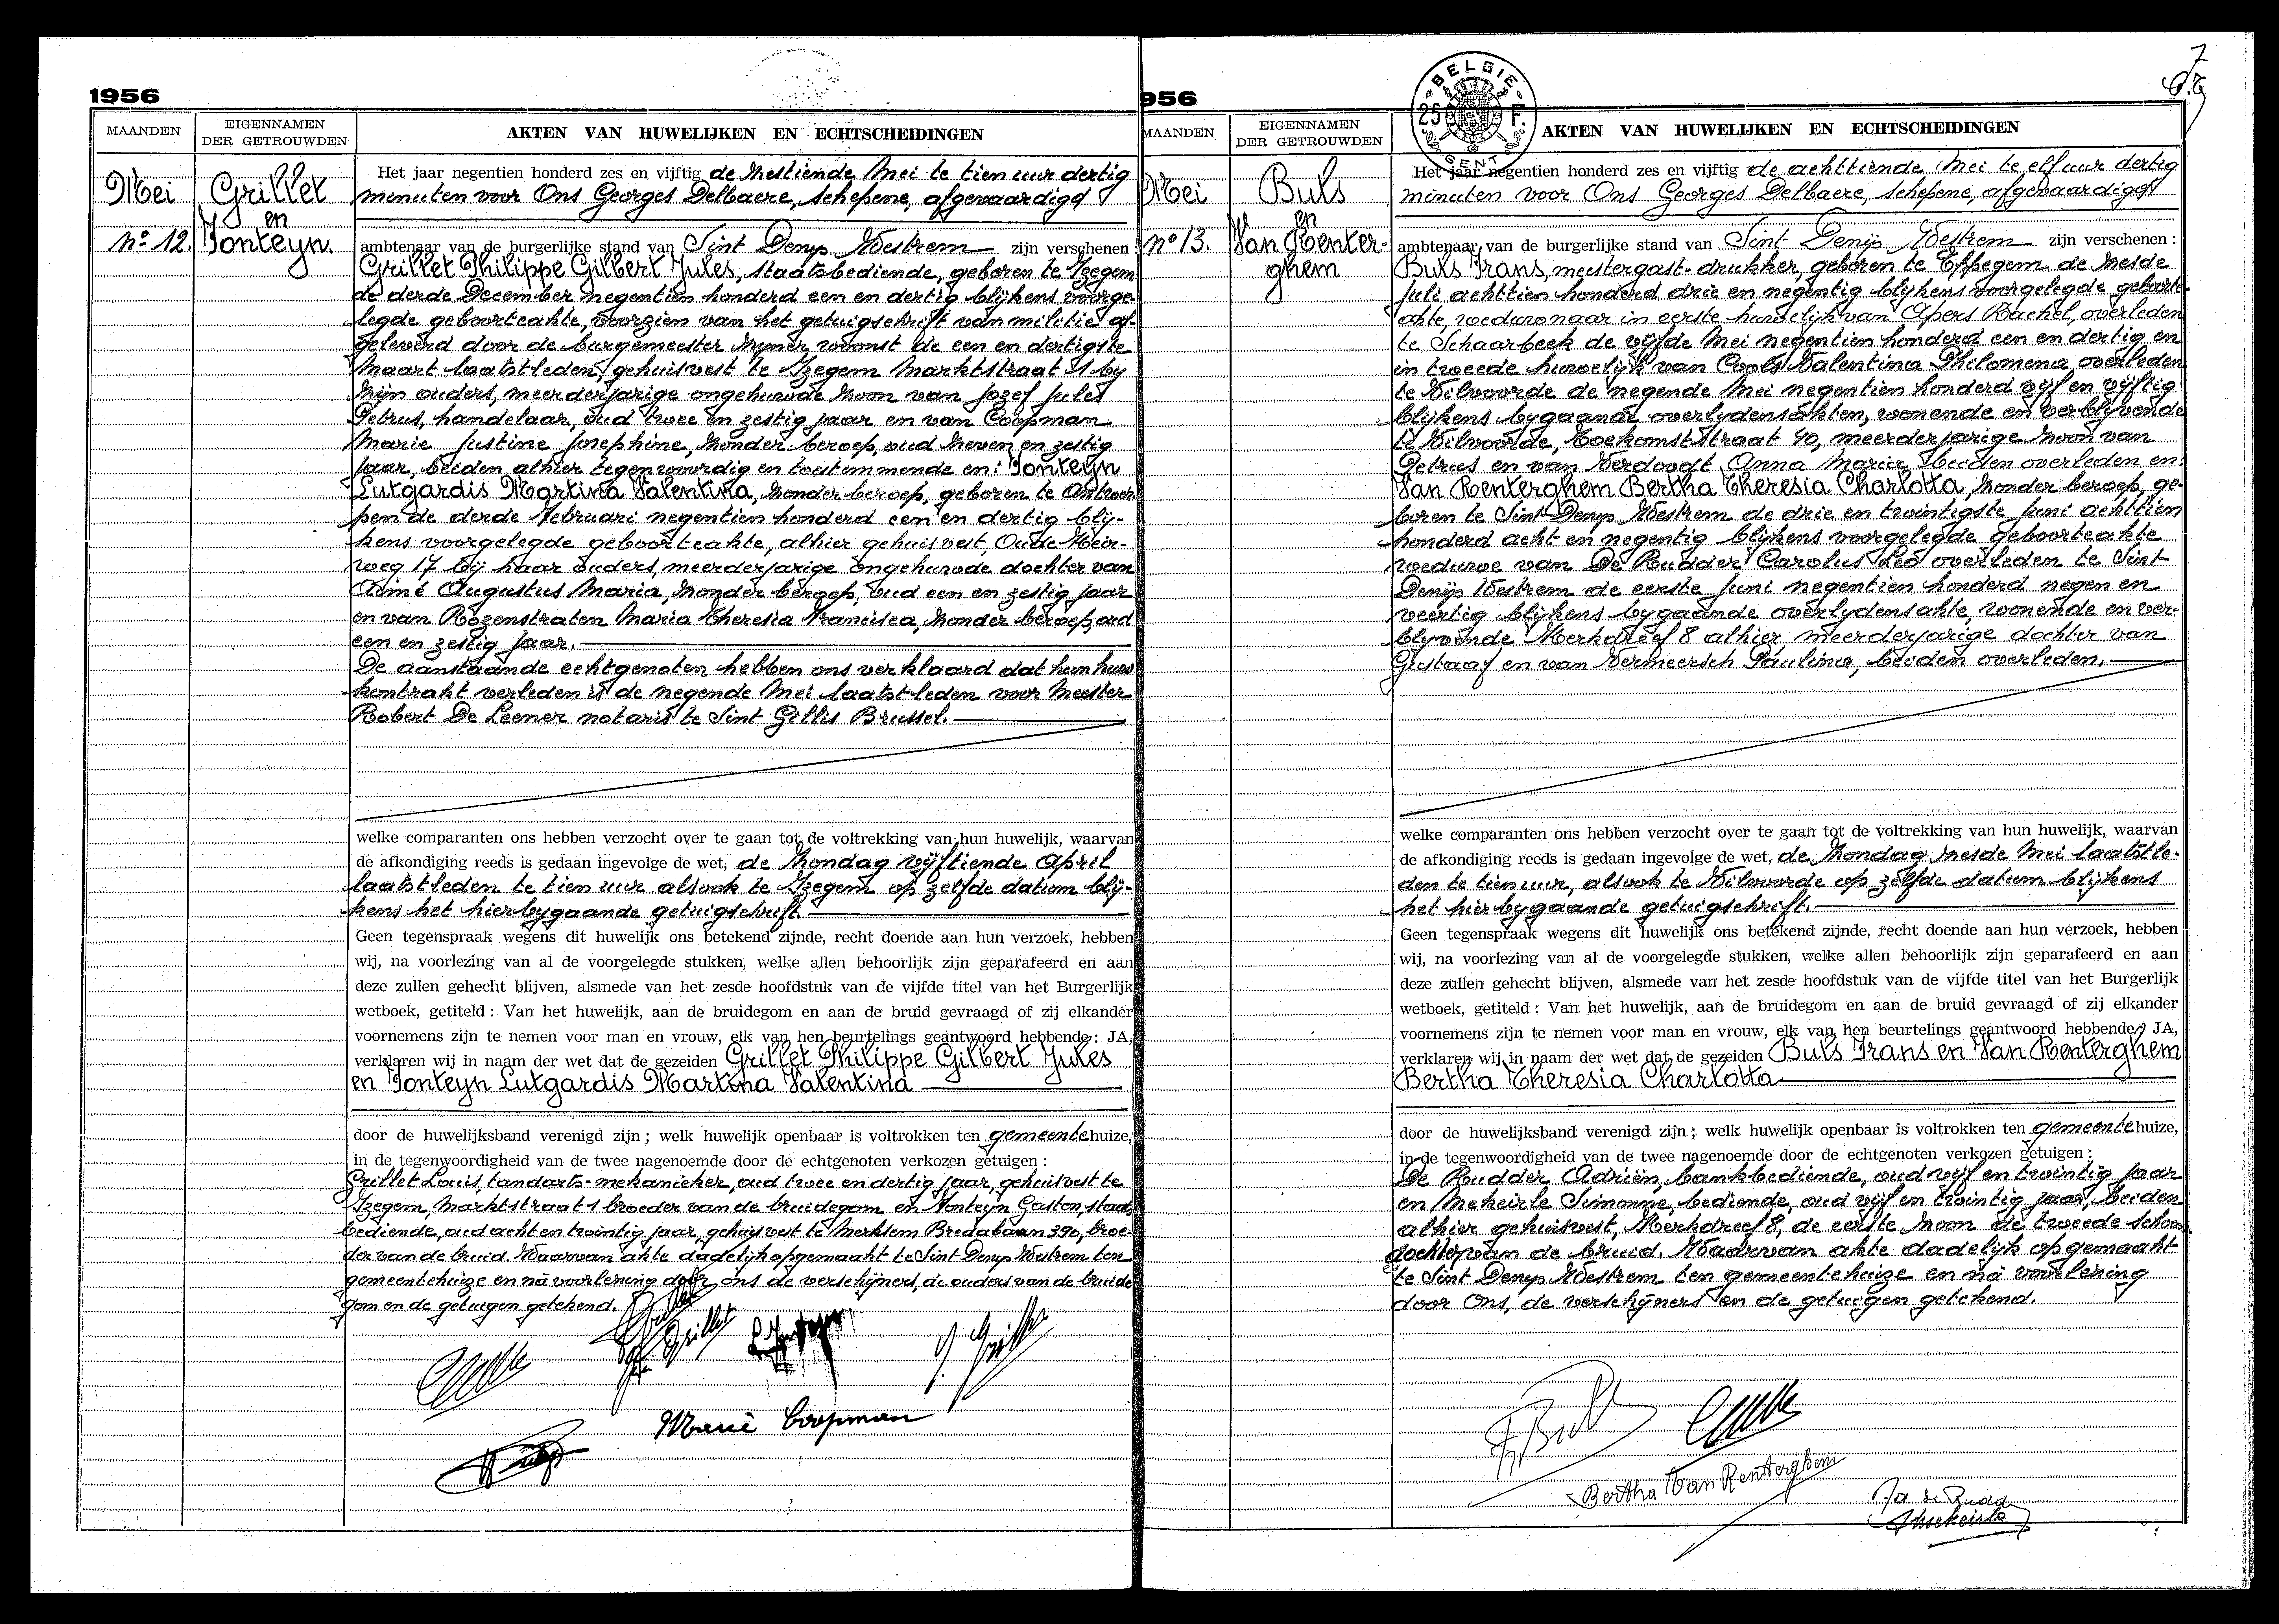 1956
MAANDEN
EIGENNAMEN
DER GETROUWDEN
AKTEN VAN HUWELIJKEN EN ECHTSCHEIDINGEN
Mei
nº 12.
Grillet
en
Fonteyn.
Het jaar negentien honderd zes en vijftig de zestiende Mei te tien uur dertig
minuten voor Ons Georges Delbaere, schepene, afgevaardigd
ambtenaar van de burgerlijke stand van Sint Denijs Westrem zijn verschenen :
Grillet Philippe Gilbert Jules, staatsbediende, geboren te Izegem
de derde December negentien honderd een en dertig blijkens voorge-
legde geboorteakte, voorzien van het getuigschrift van militie af-
geleverd door de burgemeester zijner woonst de een en dertigste
Maart laatstleden, gehuisvest te Izegem Marktstraat 1 by
zijn ouders, meerderjarige ongehuwde zoon van Jozef Jules
Petrus, handelaar, oud twee en zestig jaar en van Coopman
Marie Justine Josephine, zonder beroep, oud zeven en zestig
jaar, beiden alhier tegenwoordig en toestemmende en: Fonteyn
Lutgardis Martina Valentina, zonder beroep, geboren te Antwer-
pen de derde Februari negentien honderd een en dertig blij-
kens voorgelegde geboorteakte, alhier gehuisvest, Oude Heir-
weg 17 bij haar ouders, meerderjarige ongehuwde dochter van
Aimé Augustus Maria, zonder beroep, oud een en zestig jaar
en van Rozenstraten Maria Theresia Francisca, zonder beroep, oud
een en zestig jaar.
De aanstaande echtgenoten hebben ons verklaard dat hun huw
kontrakt verleden is de negende Mei laatstleden voor Meester
Robert De Leener notaris te Sint Gillis Brussel.
welke comparanten ons hebben verzocht over te gaan tot de voltrekking van hun huwelijk, waarvan
de afkondiging reeds is gedaan ingevolge de wet, de Zondag vijftiende April
laatstleden te tien uur alsook te Izegem op zelfde datum blij-
kens het hierbygaande getuigschrift.
Geen tegenspraak wegens dit huwelijk ons betekend zijnde, recht doende aan hun verzoek, hebben
wij, na voorlezing van al de voorgelegde stukken, welke allen behoorlijk zijn geparafeerd en aan
deze zullen gehecht blijven, alsmede van het zesde hoofdstuk van de vijfde titel van het Burgerlijk
wetboek, getiteld : Van het huwelijk, aan de bruidegom en aan de bruid gevraagd of zij elkander
voornemens zijn te nemen voor man en vrouw, elk van hen beurtelings geantwoord hebbende : JA,
verklaren wij in naam der wet dat de gezeiden Grillet Philippe Gilbert Jules
en Fonteyn Lutgardis Martina Valentina
door de huwelijksband verenigd zijn ; welk huwelijk openbaar is voltrokken ten gemeentehuize,
in de tegenwoordigheid van de twee nagenoemde door de echtgenoten verkozen getuigen :
Grillet Louis, tandarts-mekanieker, oud twee en dertig jaar, gehuisvest te
Izegem, Marktstraat 1 broeder van de bruidegom en Fonteyn Gaston, staats
bediende, oud acht en twintig jaar, gehuisvest te Merksem Bredabaan 390, broe-
der van de bruid. Waarvan akte dadelijk opgemaakt te Sint Denijs Westrem ten
gemeentehuize en na voorlezing door ons de verschijners, de ouders van de bruide
gom en de getuigen getekend.
Grillet
Marie Coopman
956
7
BELGIE
25 F.
GENT
MAANDEN
EIGENNAMEN
DER GETROUWDEN
AKTEN VAN HUWELIJKEN EN ECHTSCHEIDINGEN
Mei
nº 13.
Buls
en
Van Renter-
ghem
Het jaar negentien honderd zes en vijftig de achttiende Mei te elf uur dertig
minuten voor Ons Georges Delbaere, schepene, afgevaardigd
ambtenaar van de burgerlijke stand van Sint-Denijs Westrem zijn verschenen :
Buls Frans, meestergast-drukker, geboren te Eppegem de zesde
Juli achttien honderd drie en negentig blijkens voorgelegde geboorte-
akte, weduwnaar in eerste huwelijk van Apers Rachel, overleden
te Schaarbeek de vijfde Mei negentien honderd een en dertig en
in tweede huwelijk van Cools Valentina Philomena, overleden
te Vilvoorde de negende Mei negentien honderd vijf en vijftig
blijkens bygaande overlydensakten, wonende en verblyvende
te Vilvoorde, Toekomststraat 40, meerderjarige zoon van
Petrus en van Verdoodt Anna Maria, beiden overleden en:
Van Renterghem Bertha Theresia Charlotta, zonder beroep, ge-
boren te Sint-Denijs Westrem de drie en twintigste Juni achttien
honderd acht en negentig blijkens voorgelegde geboorteakte
weduwe van De Rudder Carolus Leo overleden te Sint-
Denijs Westrem de eerste Juni negentien honderd negen en
veertig blijkens bygaande overlydensakte, wonende en ver-
blyvende Kerkdreef 8 alhier, meerderjarige dochter van
Gustaaf en van Vermeersch Paulina, beiden overleden.
welke comparanten ons hebben verzocht over te gaan tot de voltrekking van hun huwelijk, waarvan
de afkondiging reeds is gedaan ingevolge de wet, de Zondag zesde Mei laatstle-
den te tien uur, alsook te Vilvoorde op zelfde datum blijkens
het hierbygaande getuigschrift.
Geen tegenspraak wegens dit huwelijk ons betekend zijnde, recht doende aan hun verzoek, hebben
wij, na voorlezing van al de voorgelegde stukken, welke allen behoorlijk zijn geparafeerd en aan
deze zullen gehecht blijven, alsmede van het zesde hoofdstuk van de vijfde titel van het Burgerlijk
wetboek, getiteld : Van het huwelijk, aan de bruidegom en aan de bruid gevraagd of zij elkander
voornemens zijn te nemen voor man en vrouw, elk van hen beurtelings geantwoord hebbende : JA,
verklaren wij in naam der wet dat de gezeiden Buls Frans en Van Renterghem
Bertha Theresia Charlotta
door de huwelijksband verenigd zijn ; welk huwelijk openbaar is voltrokken ten gemeentehuize,
in de tegenwoordigheid van de twee nagenoemde door de echtgenoten verkozen getuigen :
De Rudder Adriën, bankbediende, oud vijf en twintig jaar
en Mekeirle Simonne, bediende, oud vijf en twintig jaar, beiden
alhier gehuisvest, Kerkdreef 8, de eerste zoon de tweede schoon
dochter van de bruid. Waarvan akte dadelijk opgemaakt
te Sint Denijs Westrem ten gemeentehuize en na voorlezing
door Ons, de verschijners en de getuigen getekend.
Bertha Van Renterghem